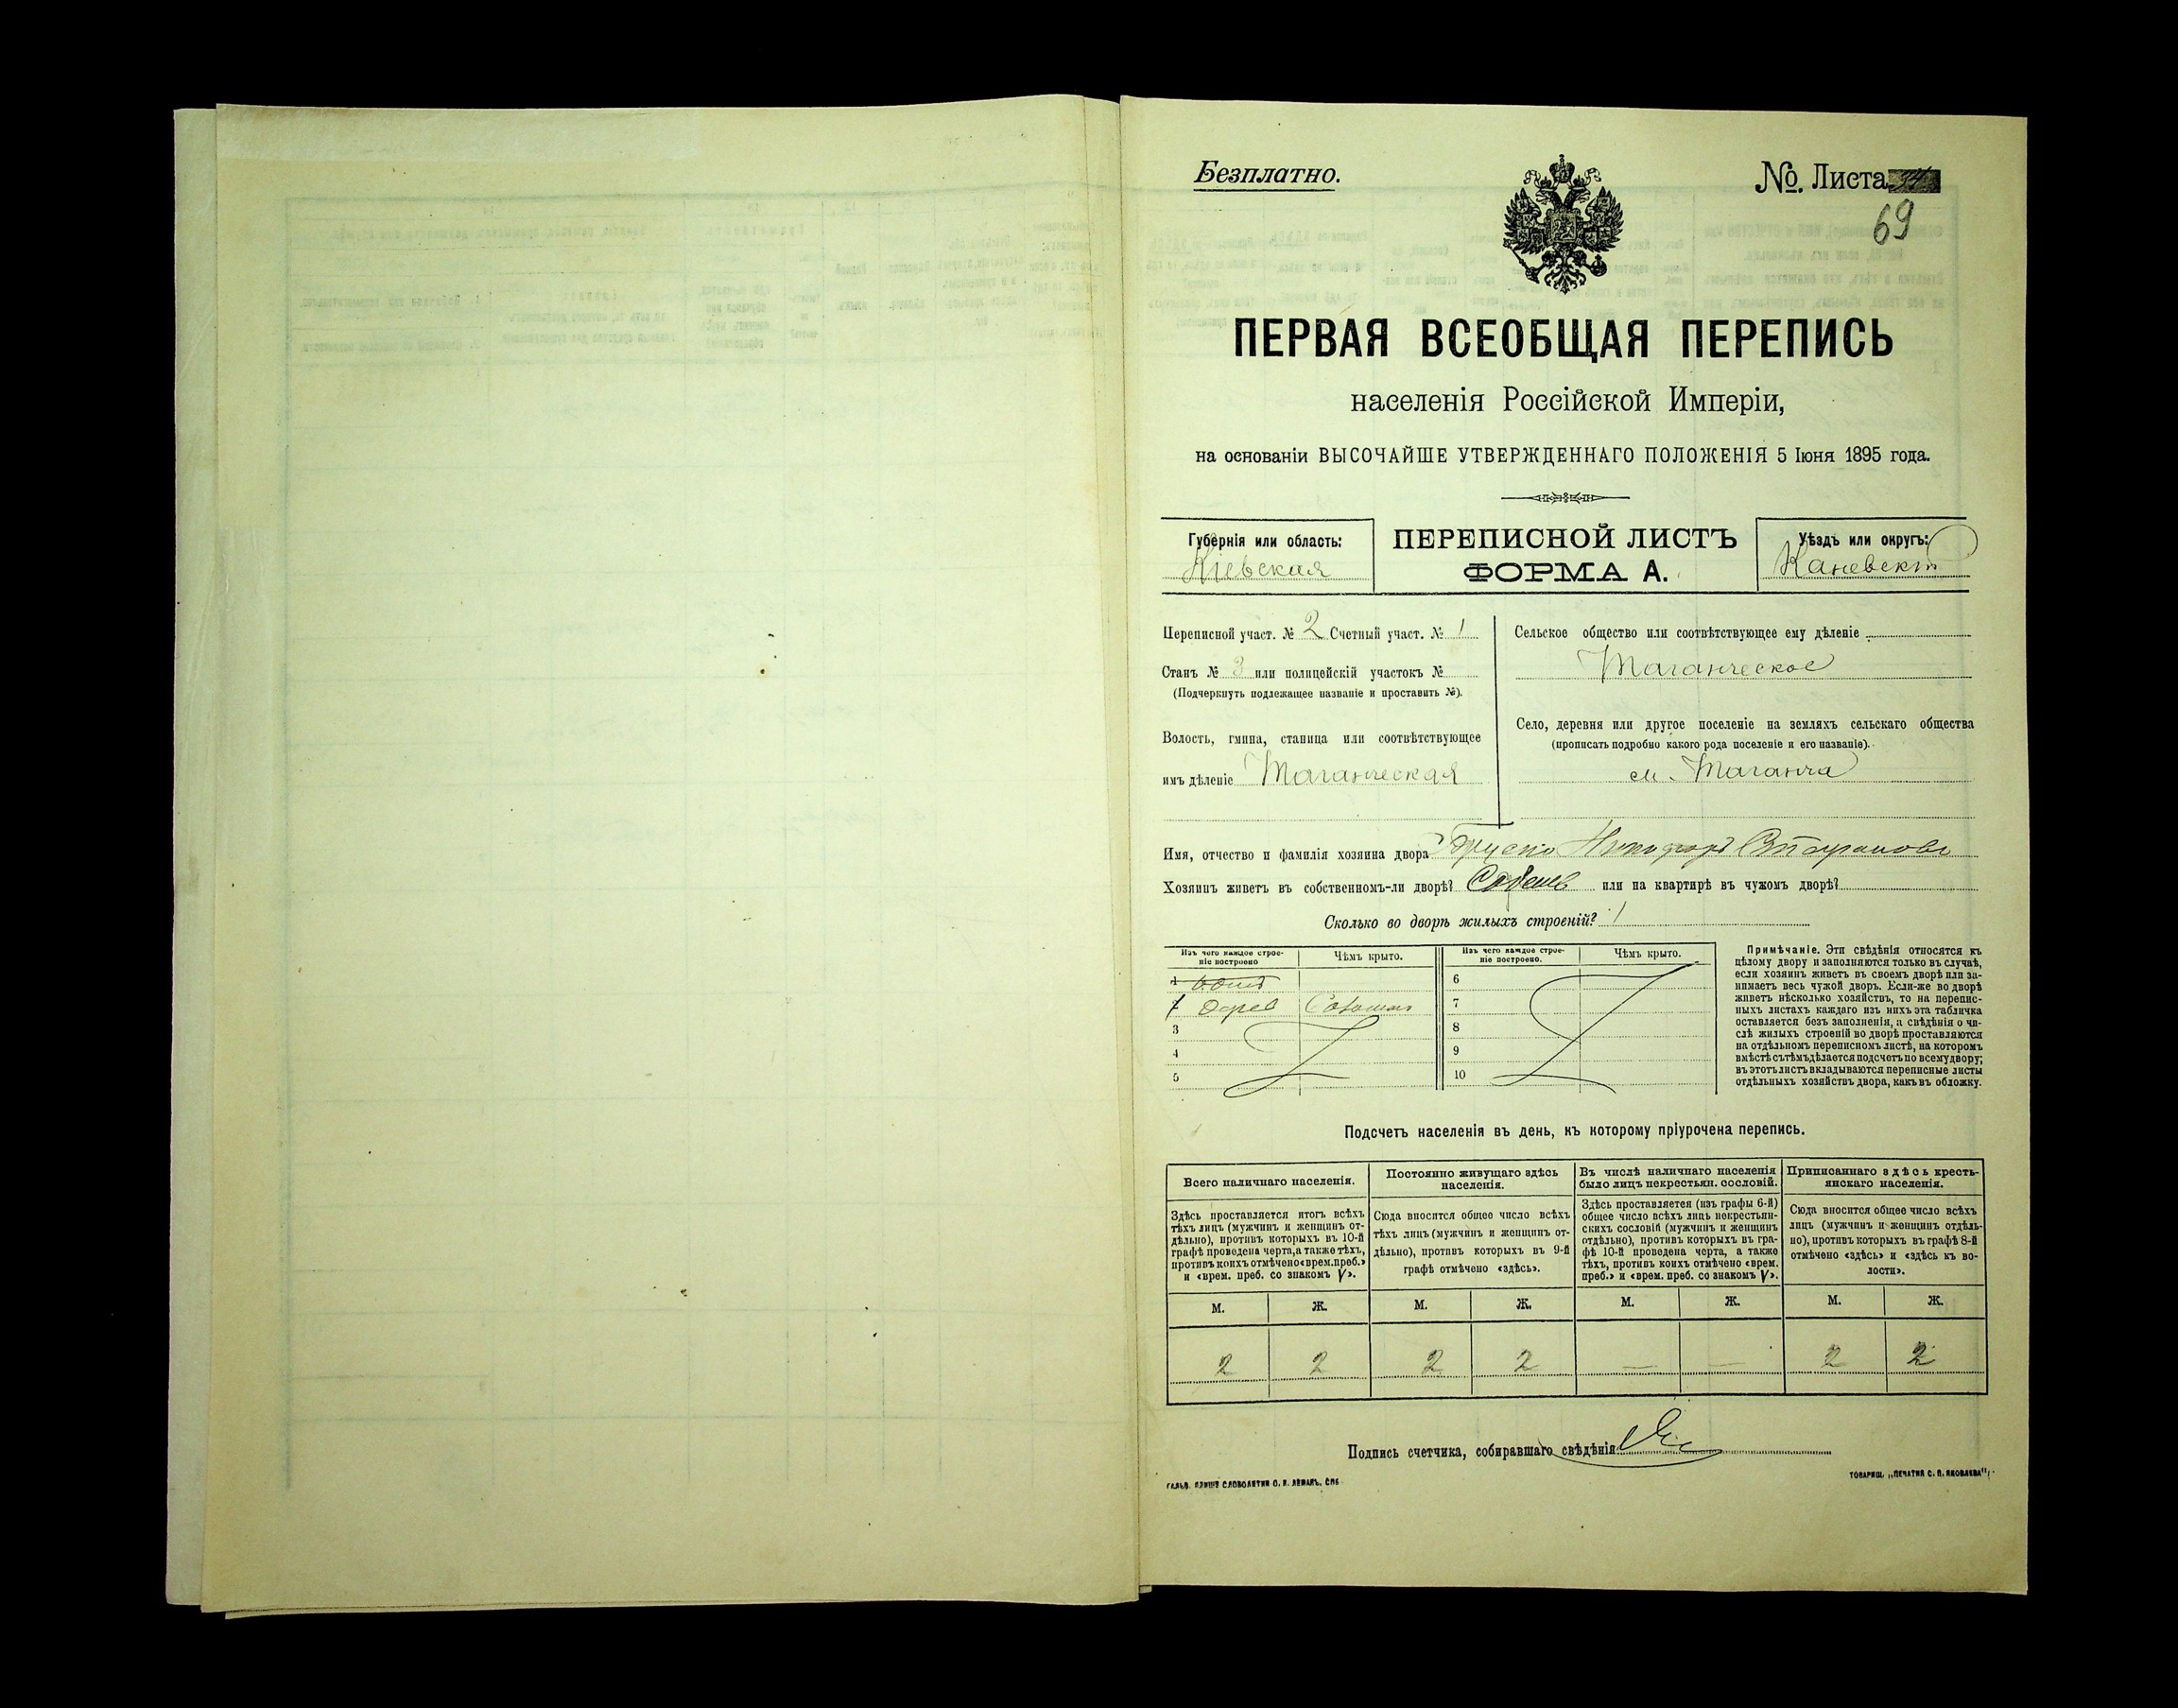 Безплатно.
№. Листа 34
69
ПЕРВАЯ ВСЕОБЩАЯ ПЕРЕПИСЬ
населенія Россійской Имперіи,
на основаніи ВЫСОЧАЙШЕ УТВЕРЖДЕННАГО ПОЛОЖЕНІЯ 5 Іюня 1895 года.
Губернія или область:
Кіевская
ПЕРЕПИСНОЙ ЛИСТЪ
ФОРМА А.
Уѣздъ или округъ:
Каневскій
Переписной участ. № 2 Счетный участ. № 1
Станъ № 3 или полицейскій участокъ №
(Подчеркнуть подлежащее названіе и проставить №).
Волость, гмина, станица или соотвѣтствующее
имъ дѣленіе Таганческая
Сельское общество или соотвѣтствующее ему дѣленіе
Таганческое
Село, деревня или другое поселеніе на земляхъ сельскаго общества
(прописать подробно какого рода поселеніе и его названіе).
м. Таганча
Имя, отчество и фамилія хозяина двора Никифоръ
Хозяинъ живетъ въ собственномъ-ли дворѣ? или на квартирѣ въ чужомъ дворѣ?
Сколько во дворѣ жилыхъ строеній? 1
Изъ чего каждое строе-
ніе построено
Чѣмъ крыто.
1
дерев Соломой
3
4
5
Изъ чего каждое строе-
ніе построено.
Чѣмъ крыто.
6
7
8
9
10
Примѣчаніе. Эти свѣдѣнія относятся къ
цѣлому двору и заполняются только въ случаѣ,
если хозяинъ живетъ въ своемъ дворѣ или за-
нимаетъ весь чужой дворъ. Если-же во дворѣ
живетъ нѣсколько хозяйствъ, то на перепис-
ныхъ листахъ каждаго изъ нихъ эта табличка
оставляется безъ заполненія, а свѣдѣнія о чи-
слѣ жилыхъ строеній во дворѣ проставляются
на отдѣльномъ переписномъ листѣ, на которомъ
вмѣстѣ съ тѣмъ дѣлается подсчетъ по всему двору;
въ этотъ листъ вкладываются переписные листы
отдѣльныхъ хозяйствъ двора, какъ въ обложку.
Подсчетъ населенія въ день, къ которому пріурочена перепись.
Всего наличнаго населенія.
Здѣсь проставляется итогъ всѣхъ
тѣхъ лицъ (мужчинъ и женщинъ от-
дѣльно), противъ которыхъ въ 10-й
графѣ проведена черта, а также тѣхъ,
противъ коихъ отмѣчено «врем. преб.»
и «врем. преб. со знакомъ V».
Постоянно живущаго здѣсь
населенія.
Сюда вносится общее число всѣхъ
тѣхъ лицъ (мужчинъ и женщинъ от-
дѣльно), противъ которыхъ въ 9-й
графѣ отмѣчено «здѣсь».
Въ числѣ наличнаго населенія
было лицъ некрестьян. сословій.
Здѣсь проставляется (изъ графы 6-й)
общее число всѣхъ лицъ некрестьян-
скихъ сословій (мужчинъ и женщинъ
отдѣльно), противъ которыхъ въ гра-
фѣ 10-й проведена черта, а также
тѣхъ, противъ коихъ отмѣчено «врем.
преб.» и «врем. преб. со знакомъ V».
Приписаннаго здѣсь кресть-
янскаго населенія.
Сюда вносится общее число всѣхъ
лицъ (мужчинъ и женщинъ отдѣль-
но), противъ которыхъ въ графѣ 8-й
отмѣчено «здѣсь» и «здѣсь къ во-
лости».
М. Ж. М. Ж. М. Ж. М. Ж.
2 2 2 2 — — 2 2
Подпись счетчика, собиравшаго свѣдѣнія
ГАЛЬВ. КЛИШЕ СЛОВОЛИТНИ О. И. ЛЕМАНЪ, СПБ
ТОВАРИЩ. „ПЕЧАТНЯ С. П. ЯКОВЛЕВА"